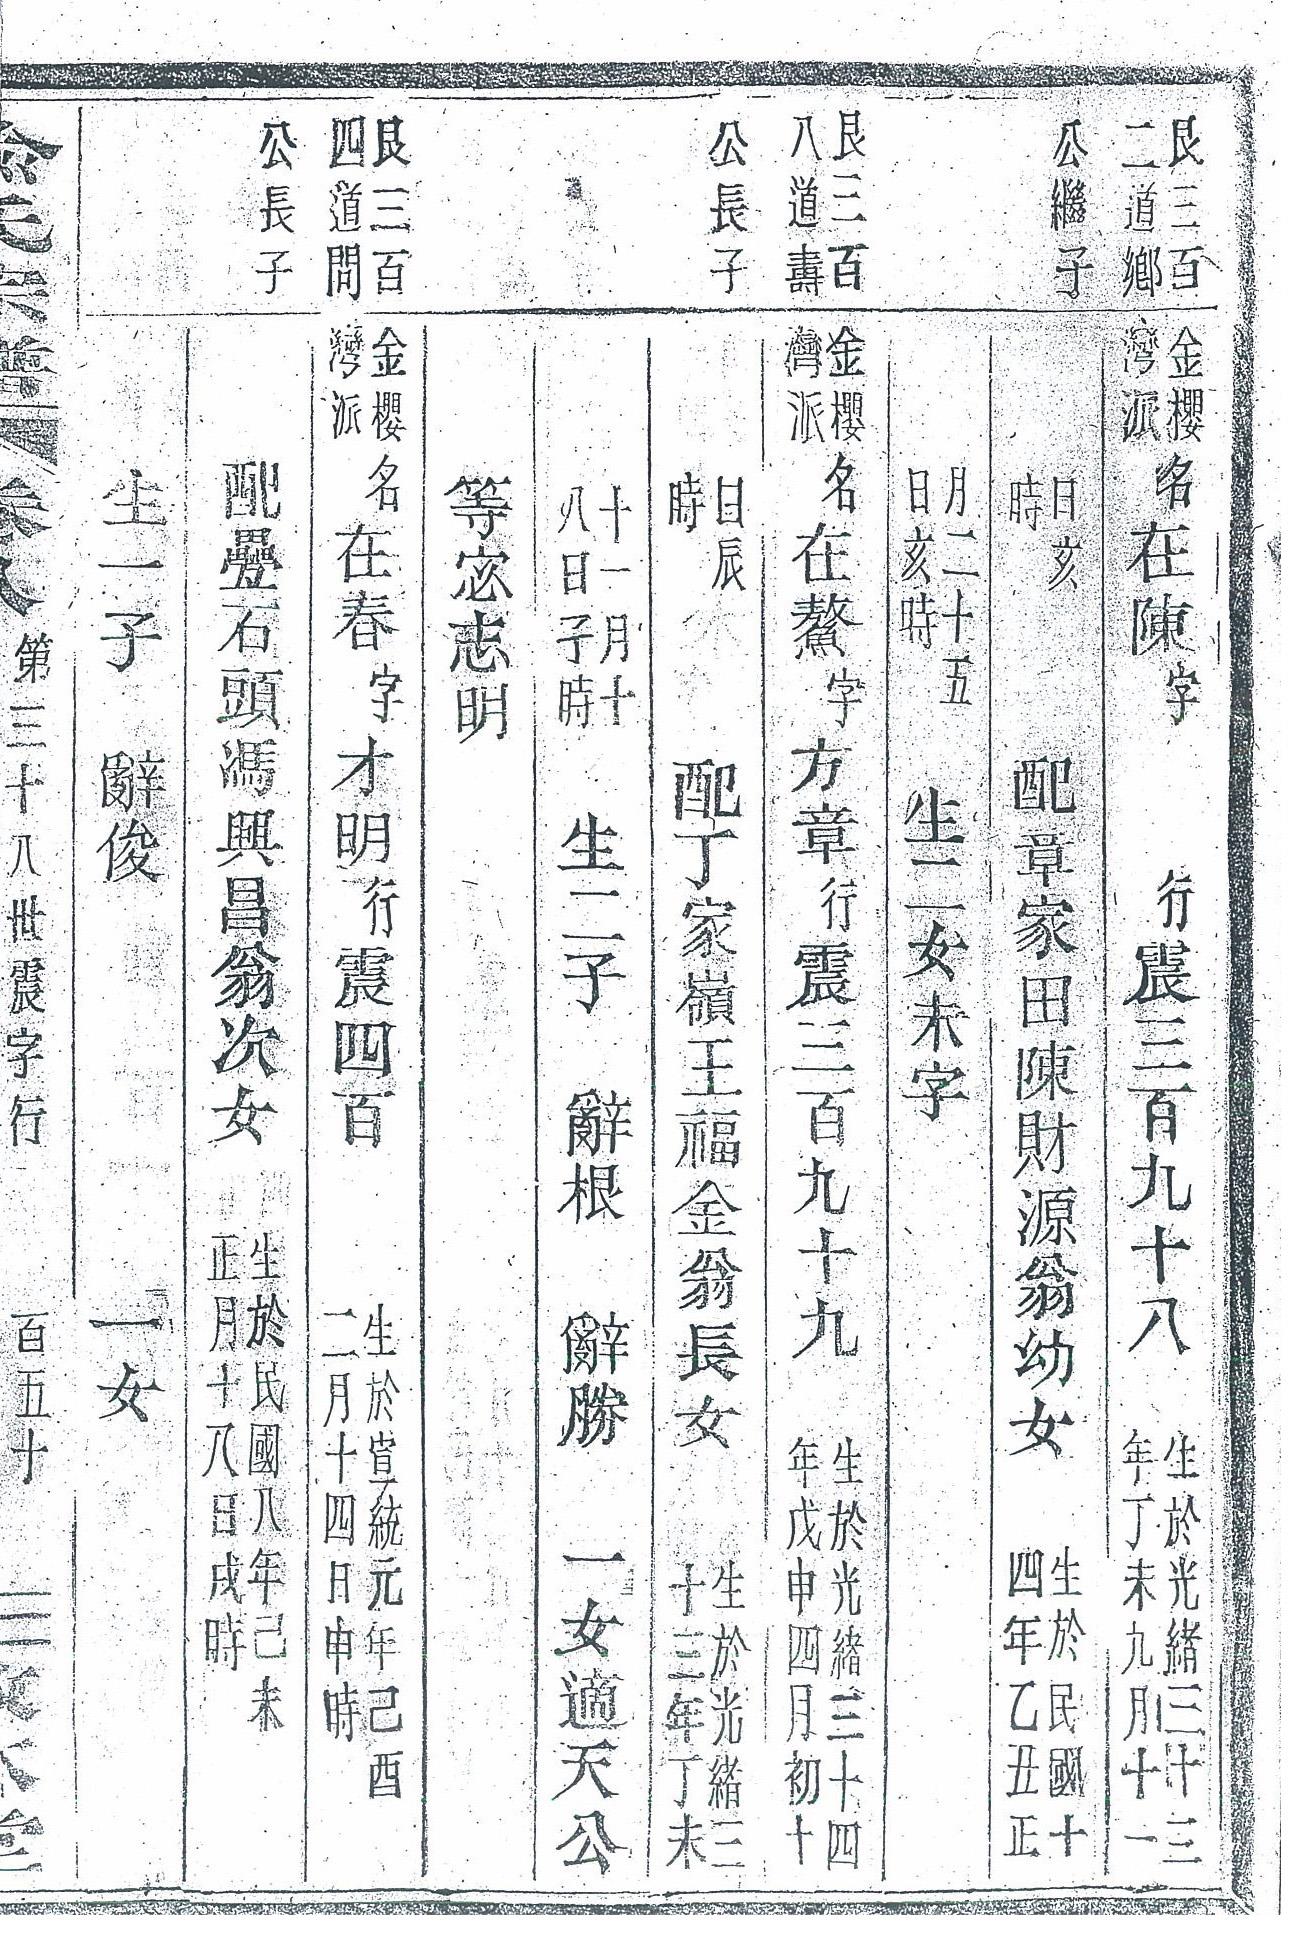 艮三百
二道鄉
公繼子
金櫻
灣派
名在陳字 行震三百九十八
生於光緒三十三
年丁未九月十一
日亥
時
配章家田陳財源翁幼女
生於民國十
四年乙丑正
月二十五
日亥時
生二女未字
艮三百
八道壽
公長子
金櫻
灣派
名在鰲字方章行震三百九十九
生於光緒三十四
年戊申四月初十
日辰
時
配丁家嶺王福金翁長女
生於光緒三
十三年丁未
十一月十
八日子時
生二子 辭根 辭勝 一女適天公
等宓志明
艮三百
四道問
公長子
金櫻
灣派
名在春字才明行震四百
生於宣統元年己酉
二月十四日申時
配疊石頭馮興昌翁次女
生於民國八年己未
正月十八日戌時
生一子 辭俊 一女
氏宗譜 卷八 第三十八世震字行 百五十